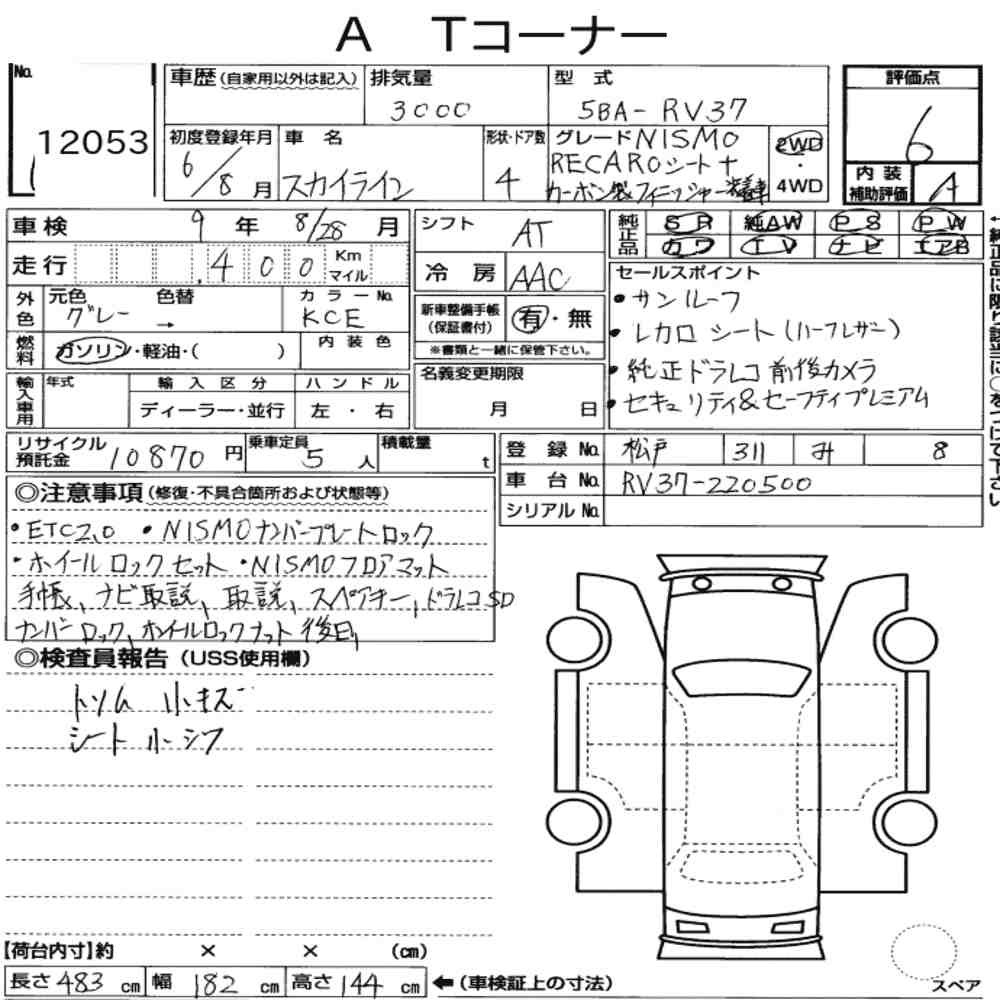 A Tコーナー
No. 12053
車歴(自家用以外は記入) 排気量 3000 型式 5BA-RV37
初度登録年月 6/8月 車名 スカイライン 形状・ドア数 4 グレード NISMO
RECAROシート+
カーボン製フィニッシャー装着車
2WD・4WD
評価点 6
内装補助評価 A
車検 9年 8/28月
走行 400 Km マイル
外色 元色 グレー 色替 → カラーNo. KCE
燃料 ガソリン・軽油・( ) 内装色
輸入車用 年式 輸入区分 ディーラー・並行 ハンドル 左・右
シフト AT
冷房 AAC
新車整備手帳(保証書付) 有・無
※書類と一緒に保管下さい。
名義変更期限 月 日
純正品 SR 純AW PS PW
カワ TV ナビ エアB
セールスポイント
・サンルーフ
・レカロシート(ハーフレザー)
・純正ドラレコ前後カメラ
・セキュリティ&セーフティプレミアム
←純正品に限り該当に○をつけて下さい
リサイクル預託金 10870円 乗車定員 5人 積載量 t
登録No. 松戸 311 み 8
車台No. RV37-220500
シリアルNo.
◎注意事項(修復・不具合箇所および状態等)
・ETC2.0 ・NISMOナンバープレートロック
・ホイールロックセット ・NISMOフロアマット
手帳、ナビ取説、取説、スペアキー、ドラレコSD
ナンバーロック、ホイールロックナット後日
◎検査員報告(USS使用欄)
トリム 小キズ
シート 小シワ
【荷台内寸】約 × × (cm)
長さ 483 cm 幅 182 cm 高さ 144 cm ←(車検証上の寸法)
スペア